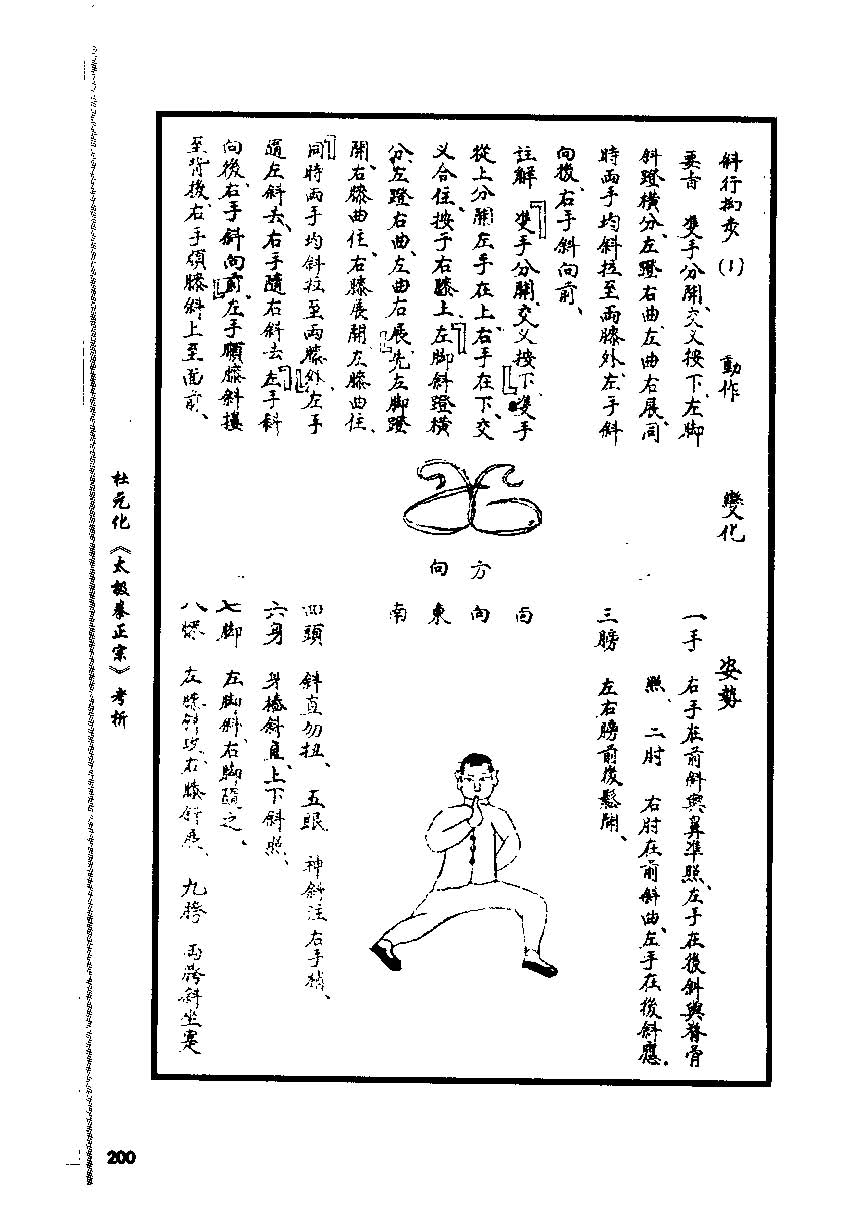 斜行拗步(1)　動作　變化　姿勢
要言　雙手分開、交义按下、左脚
斜蹬橫分、左蹬右曲、左曲右展、同
時兩手均斜拉至兩膝外、左手斜
向後、右手斜向前、
註解　雙手分開、交义按下、雙手
從上分開、左手在上、右手在下、交
义合住、按于右膝上、左脚斜蹬橫
分、左蹬右曲、左曲右展、先左脚蹬
開、右膝曲住、右膝展開、左膝曲住、
同時兩手均斜拉至兩膝外、左手
隨左斜去、右手隨右斜去、左手斜
向後、右手斜向前、左手順膝斜摟
至背後、右手順膝斜上至面前、
方向
面向東南
一手　右手在前斜與鼻準照、左手在後斜與脊骨
照、二肘　右肘在前斜曲、左手在後斜應、
三膀　左右膀前後鬆開、
四頭　斜直勿扭、五眼　神斜注右手梢、
六身　身樁斜直、上下斜照、
七脚　左脚斜、右脚隨之、
八膝　左膝斜攻、右膝斜展、九胯　兩胯斜坐寬
杜元化《太极拳正宗》考析
200